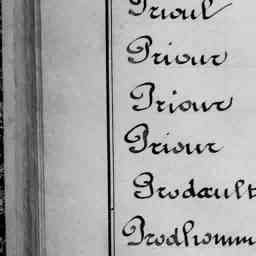 Prioul
Priour
Priour
Priour
Prodault
Prodhomm